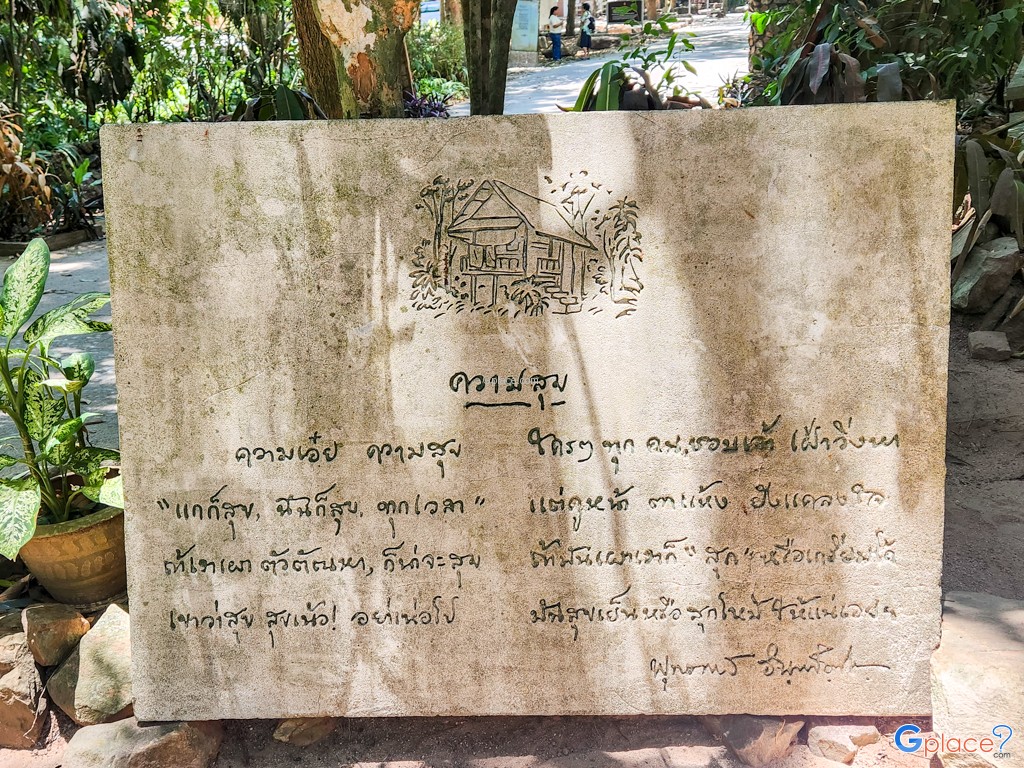 ความสุข
ความเอ๋ย ความสุข ใครๆ ทุก คน, ชอบเจ้า เฝ้าวิ่งหา
"แกก็สุข, ฉันก็สุข, ทุกเวลา" แต่ดูหน้า ตาแห้ง ยังแคลงใจ
ถ้าเราเผา ตัวตัณหา, ก็น่าจะสุข ถ้ามันเผาเราก็ "สุก" หรือเกรียมได้
เขาว่าสุข สุขเน้อ! อย่าเห่อไป มันสุขเย็น หรือ สุกไหม้ ให้แน่เอย ฯ
พุทธทาส อินทปัญโญ
Gplace?.com